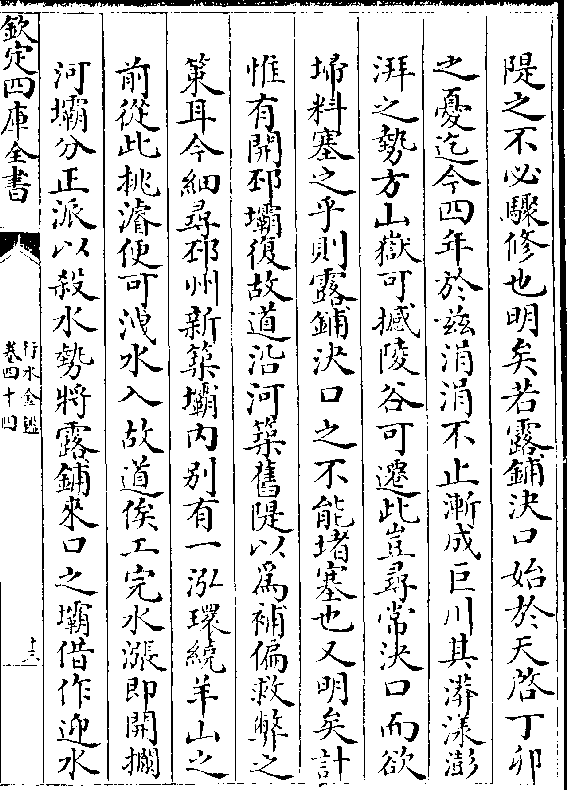 隄之不必驟修也明矣若露鋪決口始於天啓丁卯
之憂迄今四年於兹涓涓不止漸成巨川其漭漾澎
湃之勢方山嶽可撼陵谷可遷此豈尋常決口而欲
埽料塞之乎則露鋪決口之不能堵塞也又明矣計
惟有開邳壩復故道沿河築舊隄以為補偏救弊之
策耳今細尋邳州新築壩内别有一泓環繞羊山之
前從此挑濬便可洩水入故道俟工完水漲即開攔
河壩分正派以殺水勢將露鋪來口之壩借作迎水
欽定四庫全書
行水金鑑
卷四十四
十三